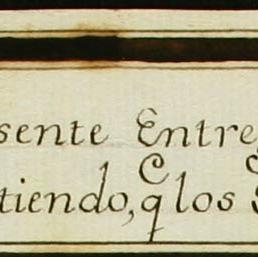 sente Entre
tiendo, q los